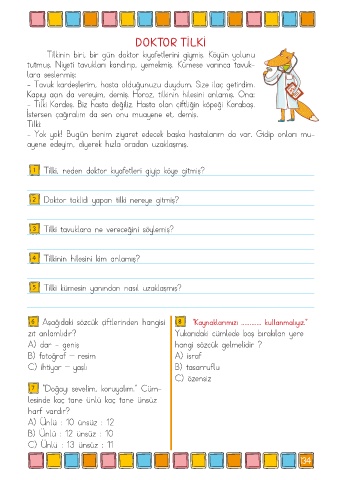 DOKTOR TİLKİ
Tilkinin biri, bir gün doktor kıyafetlerini giymiş. Köyün yolunu
tutmuş. Niyeti tavukları kandırıp, yemekmiş. Kümese varınca tavuk-
lara seslenmiş:
- Tavuk kardeşlerim, hasta olduğunuzu duydum. Size ilaç getirdim.
Kapıyı açın da vereyim, demiş. Horoz, tilkinin hilesini anlamış. Ona:
- Tilki Kardeş. Biz hasta değiliz. Hasta olan çiftliğin köpeği Karabaş.
İstersen çağıralım da sen onu muayene et, demiş.
Tilki:
- Yok yok! Bugün benim ziyaret edecek başka hastalarım da var. Gidip onları mu-
ayene edeyim, diyerek hızla oradan uzaklaşmış.
1 Tilki, neden doktor kıyafetleri giyip köye gitmiş?
2 Doktor taklidi yapan tilki nereye gitmiş?
3 Tilki tavuklara ne vereceğini söylemiş?
4 Tilkinin hilesini kim anlamış?
5 Tilki kümesin yanından nasıl uzaklaşmış?
6 Aşağıdaki sözcük çiftlerinden hangisi
zıt anlamlıdır?
A) dar - geniş
B) fotoğraf - resim
C) ihtiyar - yaşlı
7 "Doğayı sevelim, koruyalım." Cüm-
lesinde kaç tane ünlü kaç tane ünsüz
harf vardır?
A) Ünlü : 10 ünsüz : 12
B) Ünlü : 12 ünsüz : 10
C) Ünlü : 13 ünsüz : 11
8 "Kaynaklarımızı ............ kullanmalıyız."
Yukarıdaki cümlede boş bırakılan yere
hangi sözcük gelmelidir ?
A) israf
B) tasarruflu
C) özensiz
34